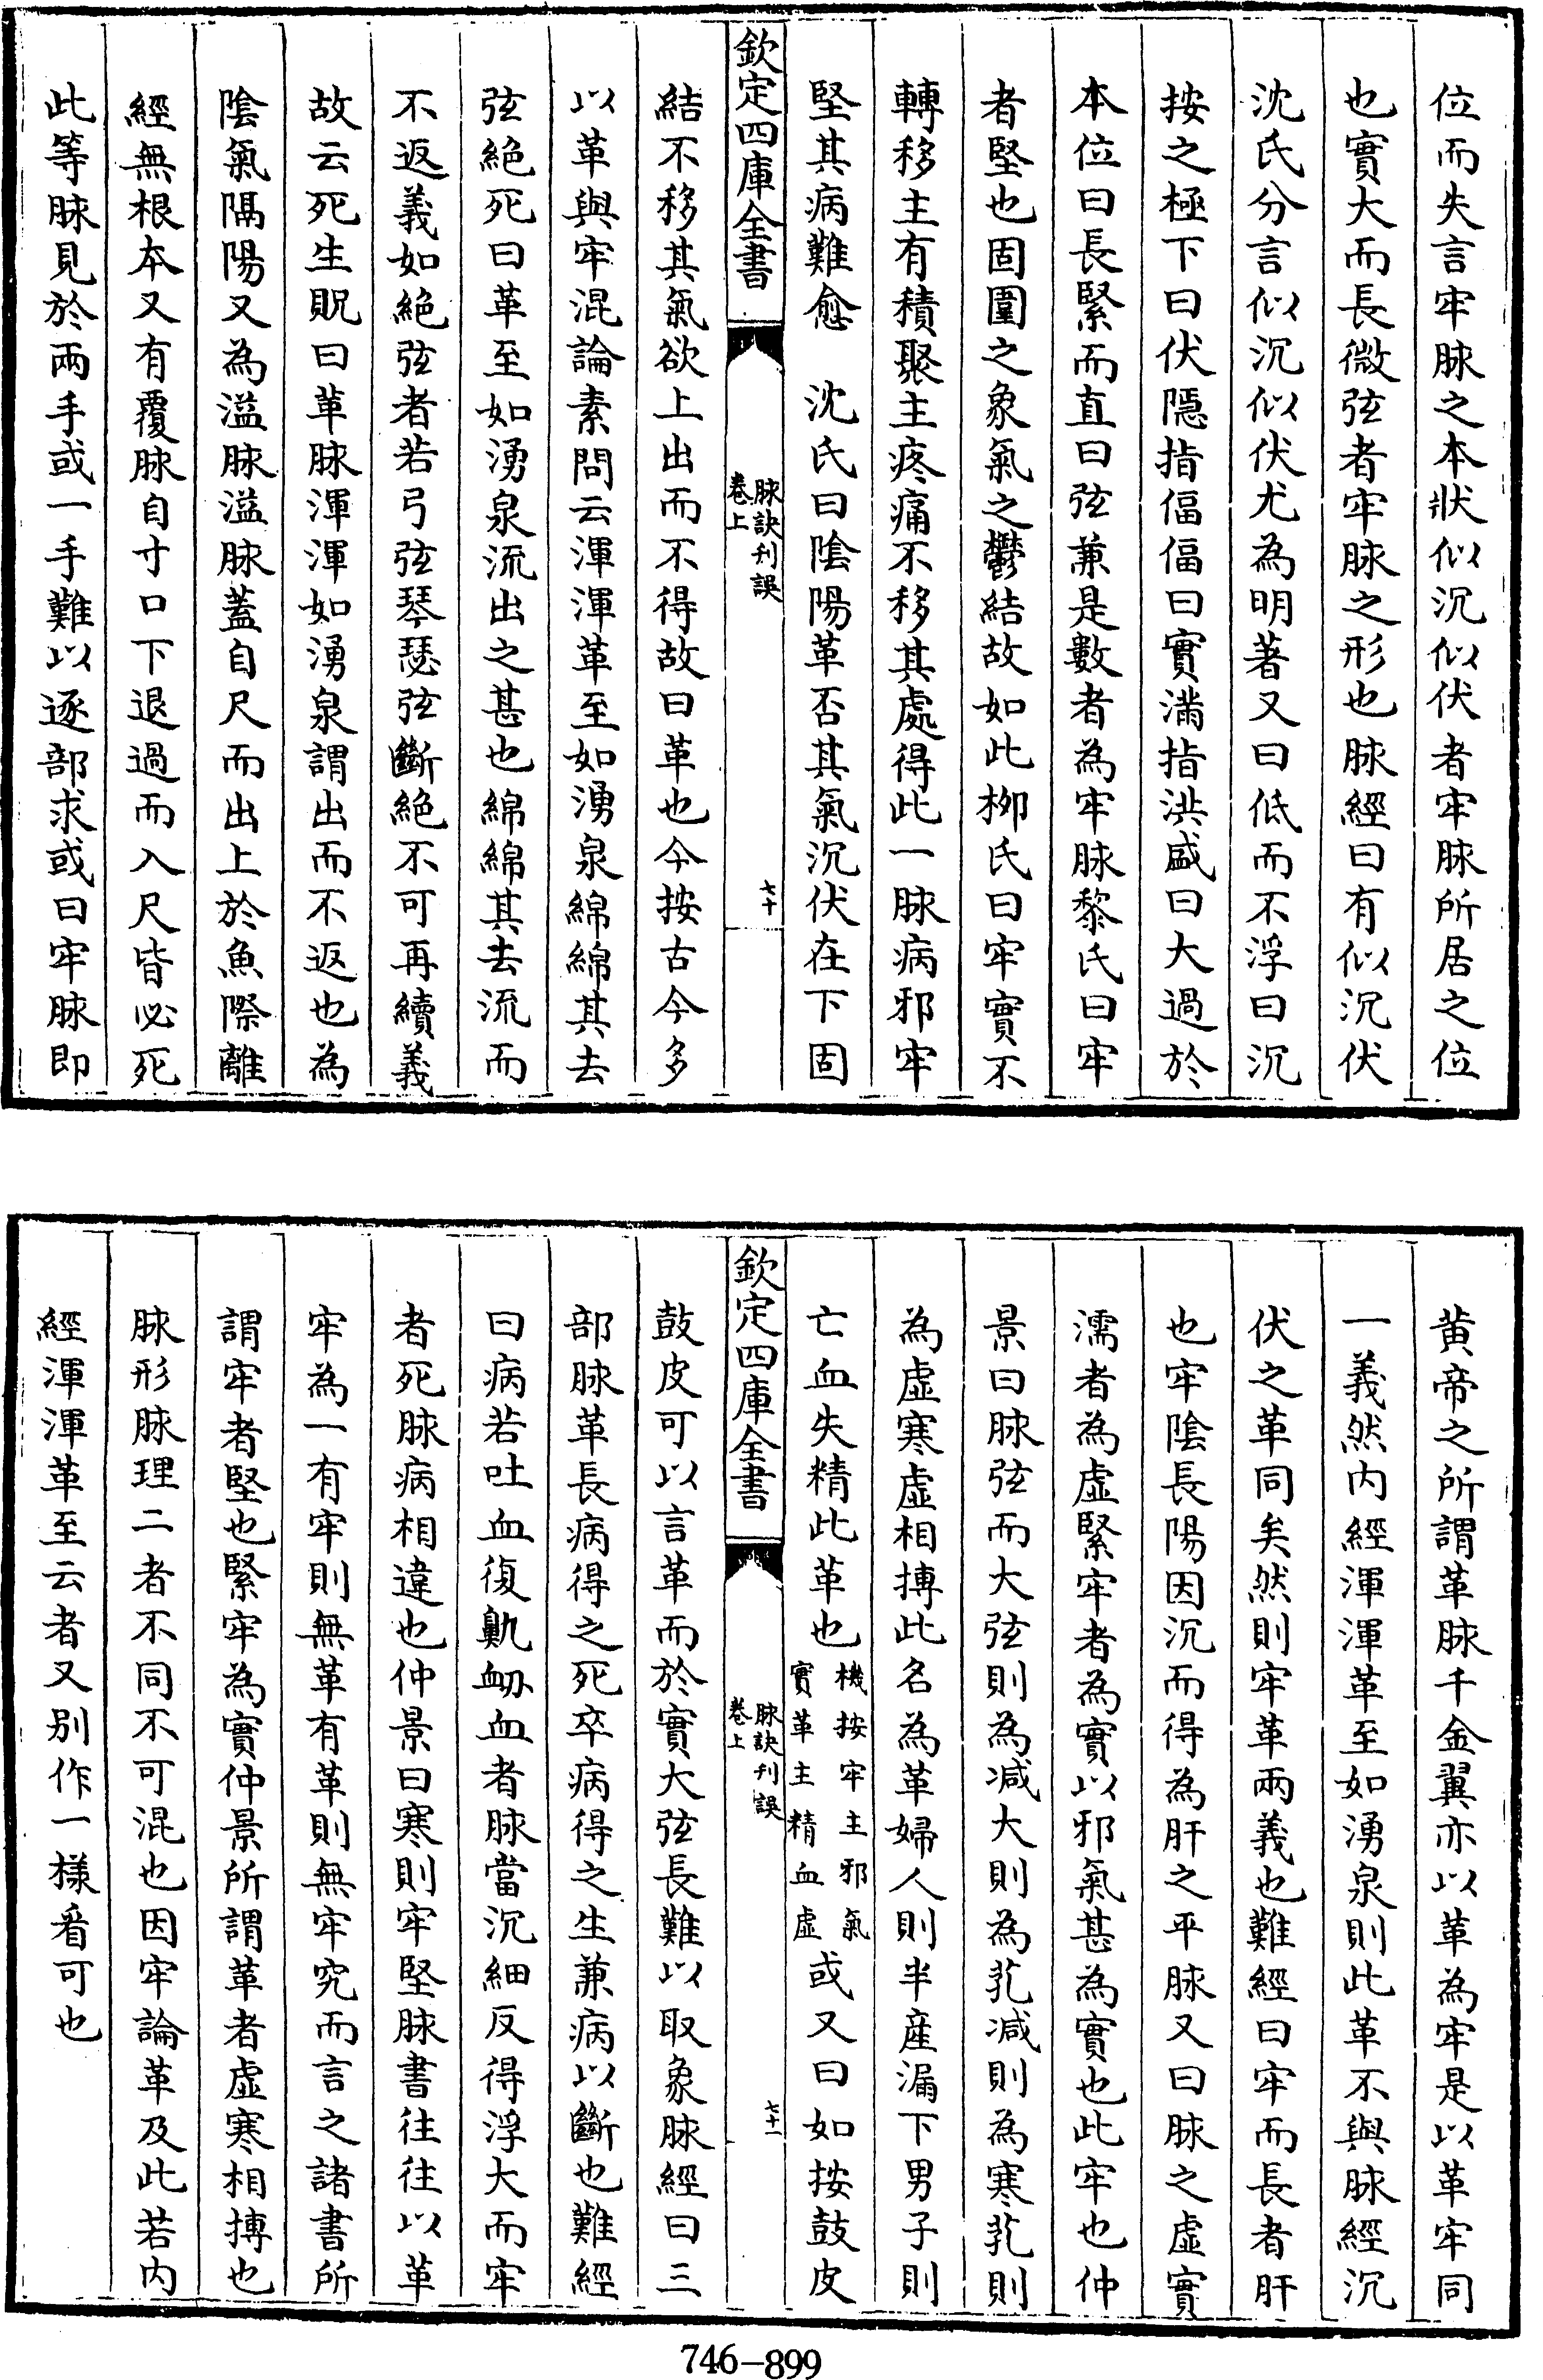 位而失言牢脉之本狀似沉似伏者牢脉所居之位
也實大而長微弦者牢脉之形也脉經曰有似沉伏
沈氏分言似沉似伏尤為明著又曰低而不浮曰沉
按之極下曰伏隱指偪偪曰實滿指洪盛曰大過於
本位曰長緊而直曰弦兼是數者為牢脉黎氏曰牢
者堅也固圍之象氣之鬱結故如此栁氏曰牢實不
轉移主有積聚主疼痛不移其處得此一脉病邪牢
堅其病難愈　沈氏曰陰陽革否其氣沉伏在下固
欽定四庫全書
脉訣刋誤
卷上
七十
結不移其氣欲上出而不得故曰革也今按古今多
以革與牢混論素問云渾渾革至如湧泉綿綿其去
弦絶死曰革至如湧泉流出之甚也綿綿其去流而
不返義如絶弦者若弓弦琴瑟弦斷絶不可再續義
故云死生貺曰革脉渾渾如湧泉謂出而不返也為
陰氣隔陽又為溢脉溢脉蓋自尺而出上於魚際離
經無根本又有覆脉自寸口下退過而入尺皆必死
此等脉見於兩手或一手難以逐部求或曰牢脉即
黄帝之所謂革脉千金翼亦以革為牢是以革牢同
一義然内經渾渾革至如湧泉則此革不與脉經沉
伏之革同矣然則牢革兩義也難經曰牢而長者肝
也牢陰長陽因沉而得為肝之平脉又曰脉之虚實
濡者為虚緊牢者為實以邪氣甚為實也此牢也仲
景曰脉弦而大弦則為减大則為芤减則為寒芤則
為虚寒虚相搏此名為革婦人則半產漏下男子則
亡血失精此革也機按牢主邪氣實革主精血虚或又曰如按鼓皮
欽定四庫全書
脉訣刋誤
卷上
七十一
鼓皮可以言革而於實大弦長難以取象脉經曰三
部脉革長病得之死卒病得之生兼病以斷也難經
曰病若吐血復鼽衂血者脉當沉細反得浮大而牢
者死脉病相違也仲景曰寒則牢堅脉書往往以革
牢為一有牢則無革有革則無牢究而言之諸書所
謂牢者堅也緊牢為實仲景所謂革者虚寒相搏也
脉形脉理二者不同不可混也因牢論革及此若内
經渾渾革至云者又别作一様看可也
746-899